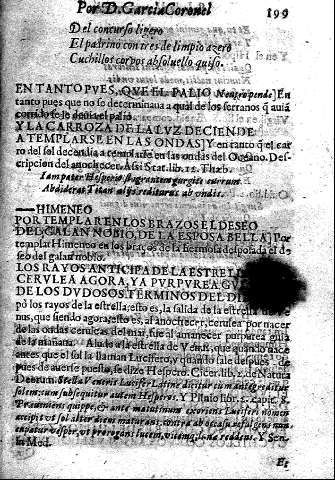 Por D. Garcia Coronel 199
Del concurso ligero
El padrino con tres de limpio azero
Cuchillos corvos absoluello quiso.
EN TANTO PUES, QUE EL PALIO Neutro pende] En
tanto pues que no se determinaua a quàl de los serranos q̃ auiã
corrido se le deuia el palio.
Y LA CARROZA DE LA LVZ DECIENDE
A TEMPLARSE EN LAS ONDAS] Y en tanto q̃ el car
ro del sol decendia a templarse en las ondas del Oceano. Des-
cripcion del anochecer. Assi Stat. lib. 12. Theb.
Iam pater Hesperio flagrantem gurgite currum
Abdiderat Titan aliis rediturus ab undis.
—HIMENEO
POR TEMPLAR EN LOS BRAZOS EL DESEO
DEL GALAN NOBIO, DE LA ESPOSA BELLA] Por
templar Himeneo en los braços de la hermosa desposada el de
seo del galan nobio.
LOS RAYOS ANTICIPA DE LA ESTRELLA
CERVLEA AGORA, YA PVRPVREA
DE LOS DVDOSOS TERMINOS DEL
pò los rayos de la estrella; esto es, la salida de la estrella de Ve-
nus, que siendo agora, esto es, al anochecer, cerulea por nacer
de las ondas ceruleas del mar, fue al amanecer purpurea guia
de la mañana. Alude a la estrella de Venus, que quando nace
antes que el sol la llaman Lucifero, y quando sale despues
pues de auerse puesto, se dize Hespero. Cicer. lib. 2. de Natura
Deorum. Stella Veneris Lucifer Latine dicitur cum antegreditur
solem; cum subsequitur autem Hesperos. Y Plinio lib. 2. capit. 8.
Præueniens quippe, & ante matutinum exoriens Luciferi nomen
accipit ut sol alter diem maturans; contra ab occasu refulgens nun
cupatur vesper, ut prorogans lucem, vicemq; lunæ reddens. Y Sen
in Med.